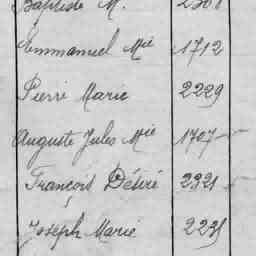 Baptiste M.
Emmanuel Mie 1712
Pierre Marie 2229
Auguste Jules Mie 1707
François Désiré 2321
Joseph Marie